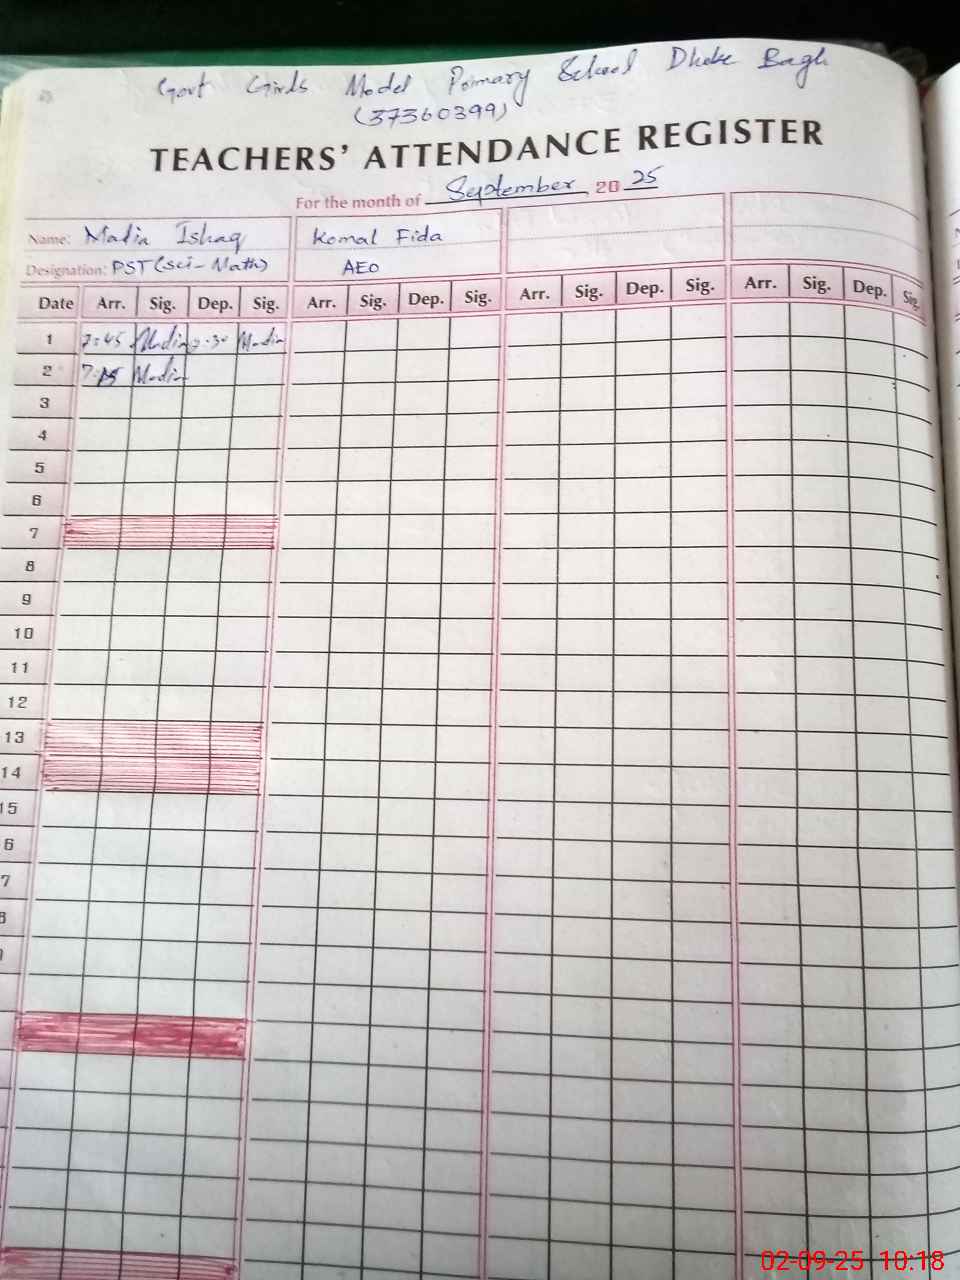 Govt Girls Model Primary School Dhoke Bagh
(37360399)
TEACHERS' ATTENDANCE REGISTER
For the month of September 2025
Name: Madia Ishaq Komal Fida
Designation: PST (Sci-Math) AEO
Date Arr. Sig. Dep. Sig. Arr. Sig. Dep. Sig. Arr. Sig. Dep. Sig. Arr. Sig. Dep. Sig.
1 7:45 Madia Madia
2 Madia
3
4
5
6
7
8
9
10
11
12
13
14
15
6
7
02-09-25 10:18